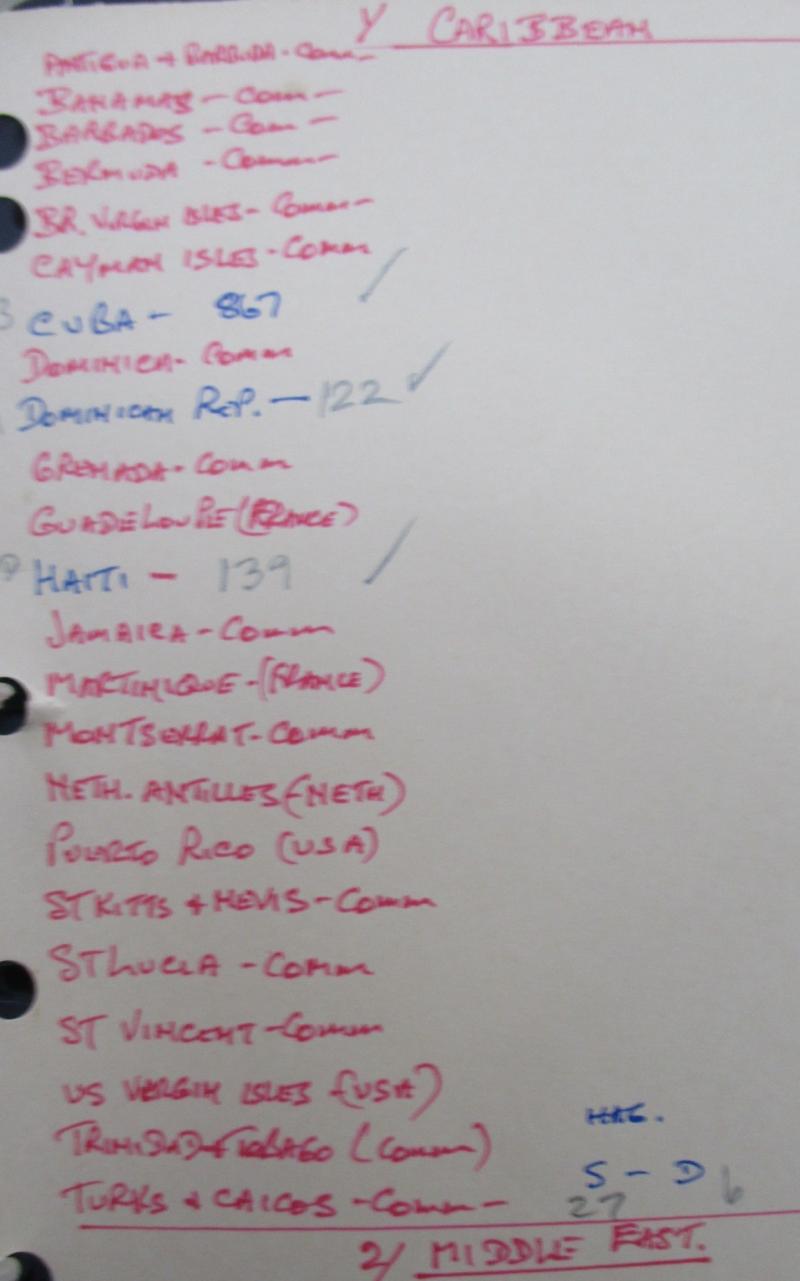 Y CARIBBEAN
ANTIGUA + BARBUDA - Comm -
BAHAMAS - Comm -
BARBADOS - Com -
BERMUDA - Comm -
BR. VIRGIN ISLES - Comm -
CAYMAN ISLES - Comm
CUBA - 867
DOMINICA - Comm
DOMINICAN REP. - 122 ✓
GRENADA - Comm
GUADELOUPE (FRANCE)
HAITI - 139
JAMAICA - Comm
MARTINIQUE - (FRANCE)
MONTSERRAT - Comm
NETH. ANTILLES (NETH)
PUERTO RICO (USA)
ST KITTS + NEVIS - Comm
ST LUCIA - Comm
ST VINCENT - Comm
US VIRGIN ISLES (USA)
TRINIDAD + TOBAGO (Comm)
S - D 6
TURKS & CAICOS - Comm - 27
2/ MIDDLE EAST.